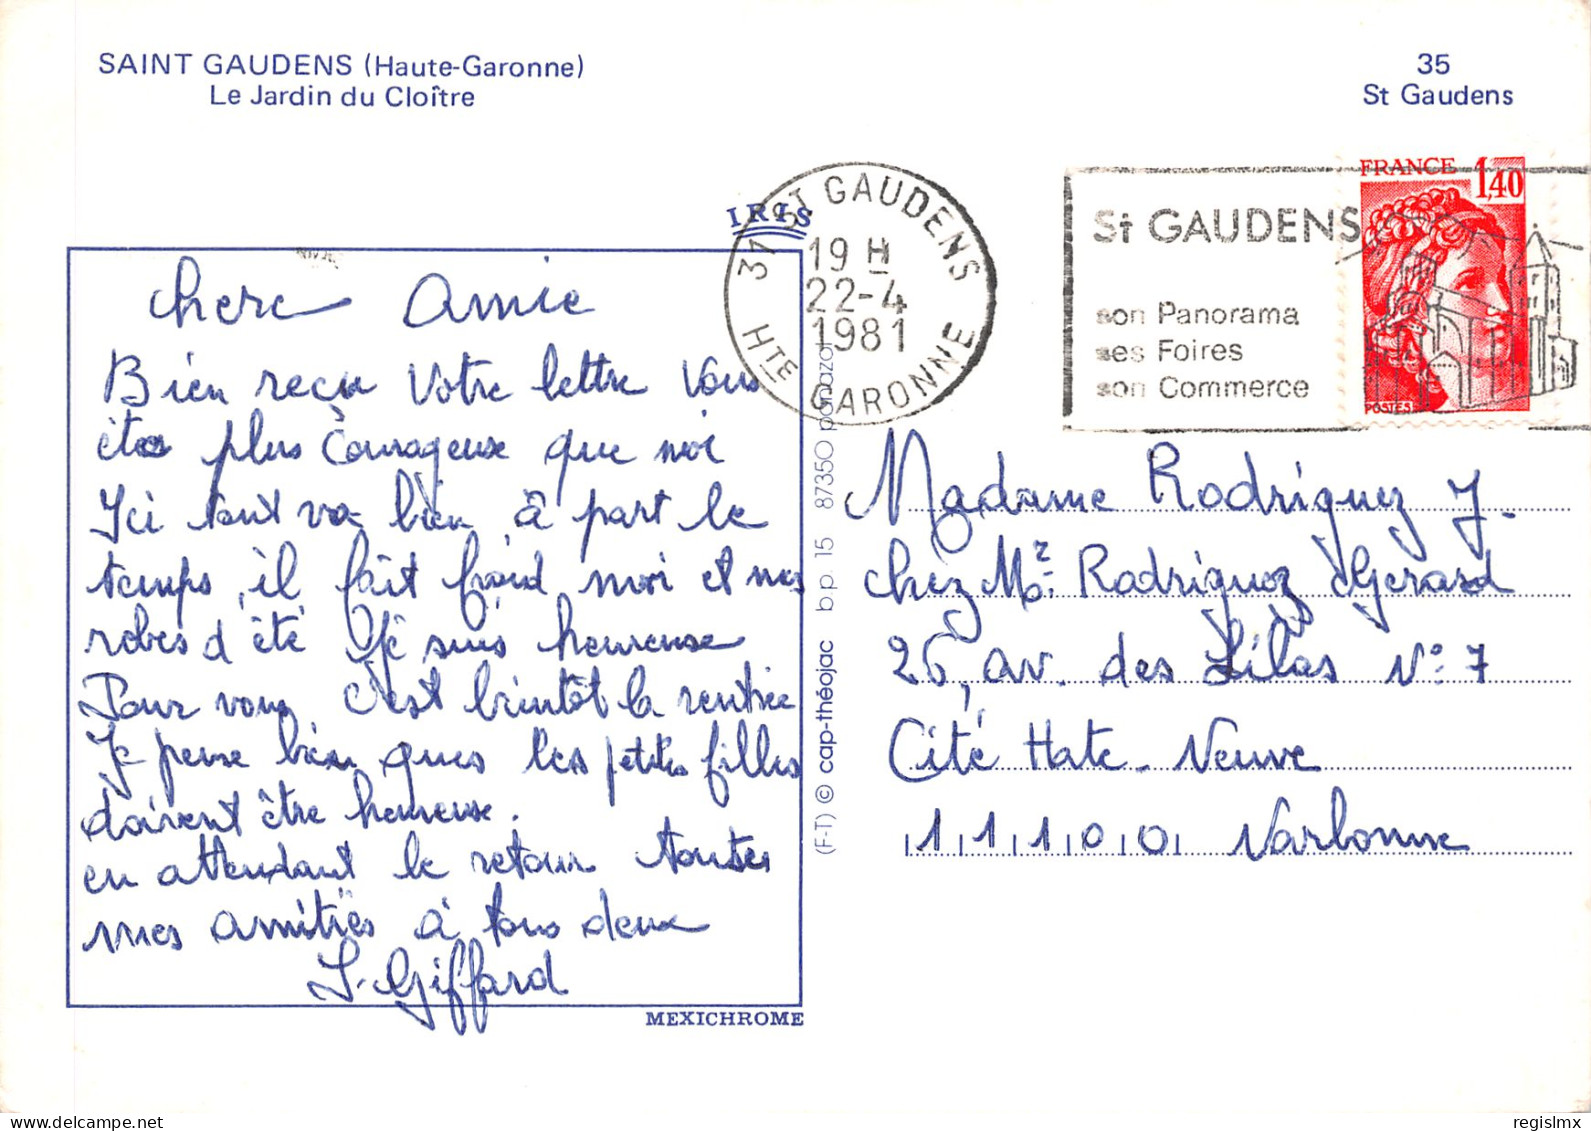 SAINT GAUDENS (Haute-Garonne)
Le Jardin du Cloître
35
St Gaudens
IRIS
31 ST GAUDENS
19 H
22-4
1981
HTE GARONNE
St GAUDENS
son Panorama
ses Foires
son Commerce
FRANCE 1,40
POSTES
chere Amie
Bien reçu Votre lettre Vous
êtes plus Courageuse que moi
Ici tout va bien à part le
temps, il fait froid moi et mes
robes d'été Je suis heureuse
Pour vous c'est bientôt la rentrée
Je pense bien ques les petites filles
doivent être heureuse.
en attendant le retour toutes
mes amitiés à tous deux
J. Giffard
MEXICHROME
(F-T) © cap-théojac b.p. 15 87350 panazol
Madame Rodriguez J.
chez Mr. Rodriguez Gerard
26, av. des Lilas N° 7
Cité Hate-Neuve
11100 Narbonne
regislmx